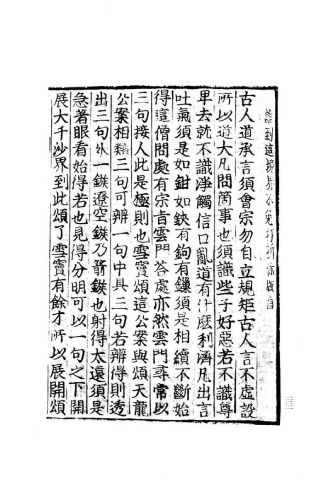 古人道承言須會宗勿自立規矩古人言不虛設
所以道大凡問箇事也須識些子好惡若不識尊
卑去就不識淨觸信口亂道有什麼利濟凡出言
吐氣須是如鉗如鋏有鉤有鏁須是相續不斷始
得這僧問處有宗旨雲門答處亦然雲門尋常以
三句接人此是極則也雪竇頌這公案與頌大龍
公案相類三句可辨一句中具三句若辨得則透
出三句外一鏃遼空鏃乃箭鏃也射得太遠須是
急著眼看始得若也見得分明可以一句之下開
展大千沙界到此頌了雪竇有餘才所以展開頌